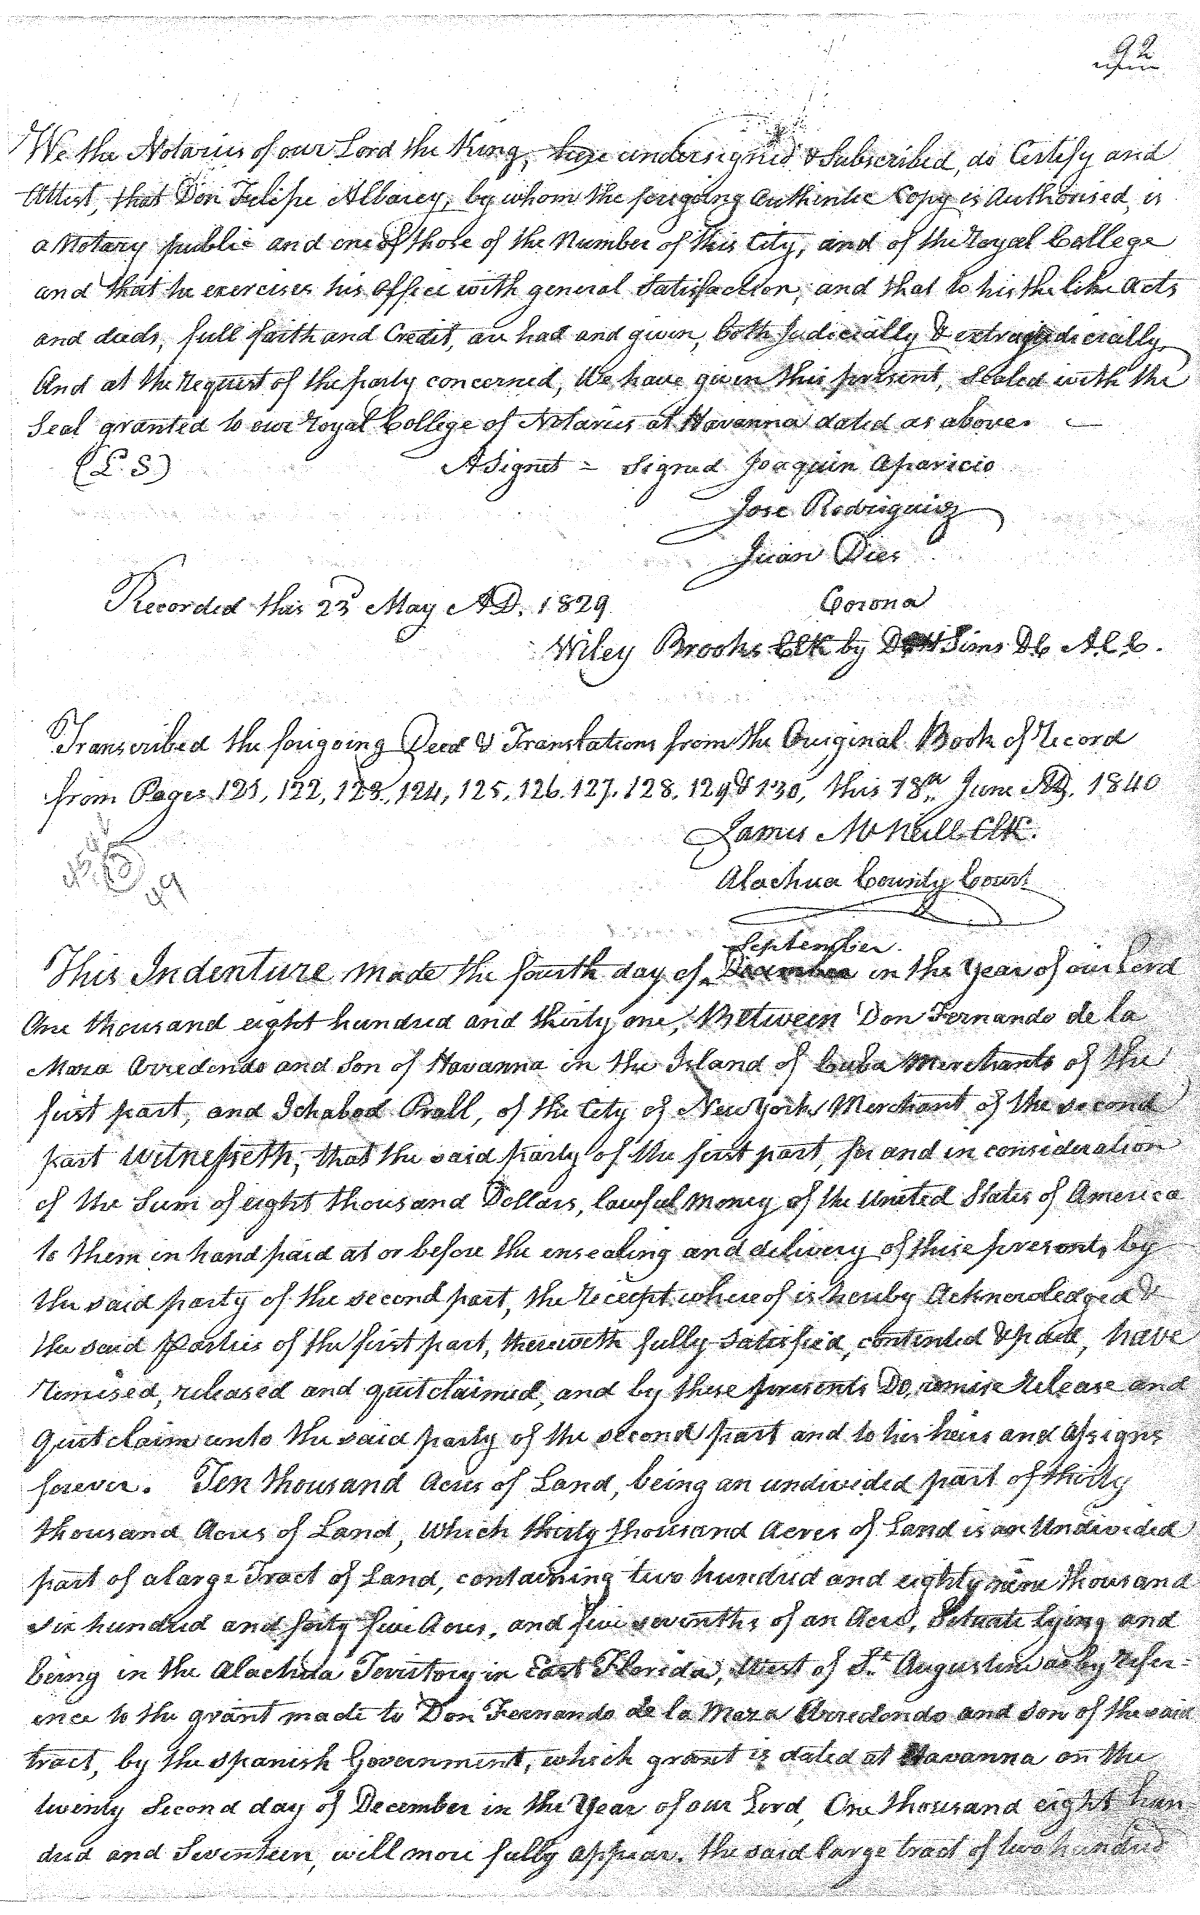 92
We the Notaries of our Lord the King, here undersigned & Subscribed, do Certify and
Attest, that Don Felipe Albarez, by whom the foregoing Authentic Copy is Authorised, is
a Notary public and one of those of the Number of this City, and of the Royal College
and that he exercises his Office with general Satisfaction, and that to his the like Acts
and deeds, full faith and Credit, are had and given, both Judicially & extrajudicially,
And at the request of the party concerned, We have given this present, Sealed with the
Seal granted to our Royal College of Notaries at Havanna dated as above.
(L. S) A Signet = Signed Joaquin Aparicio
Jose Rodriguiez
Juan Dies
Recorded this 23d May AD. 1829. Corona
Wiley Brooks Clk by Sims DC A.C.C.
Transcribed the forigoing Deed & Translations from the Original Book of Record
from Pages 121, 122, 123, 124, 125, 126. 127. 128. 129 & 130, this 18th June AD. 1840
James McNeill Clk.
Alachua County Court
45 49
September.
This Indenture made the fourth day of December in the Year of our Lord
One thousand eight hundred and thirty one, Between Don Fernando de la
Maza Arredondo and Son of Havanna in the Island of Cuba Merchants of the
first part, and Ichabod Prall, of the City of New York Merchant of the second
part Witnesseth, that the said party of the first part, for and in consideration
of the Sum of eight thousand Dollars, lawful money of the United States of America
to them in hand paid at or before the ensealing and delivery of these presents, by
the said party of the second part, the receipt whereof is hereby Acknowledged &
the said parties of the first part, therewith fully satisfied, contented & paid, have
remised, released and quitclaimed, and by these presents Do, remise release and
Quitclaim unto the said party of the second part and to his heirs and Assigns
forever. Ten thousand Acres of Land, being an undivided part of thirty
thousand Acres of Land, which thirty thousand Acres of Land is an Undivided
part of a large Tract of Land, containing two hundred and eighty nine thousand
six hundred and forty five Acres, and five sevenths of an Acre, Situate lying and
being in the Alachua Territory in East Florida, West of St. Augustine as by refer-
ence to the grant made to Don Fernando de la Maza Arredondo and son of the said
tract, by the Spanish Government, which grant is dated at Havanna on the
twenty Second day of December in the Year of our Lord, One thousand eight hun-
dred and Seventeen, will more fully appear. the said large tract of two hundred